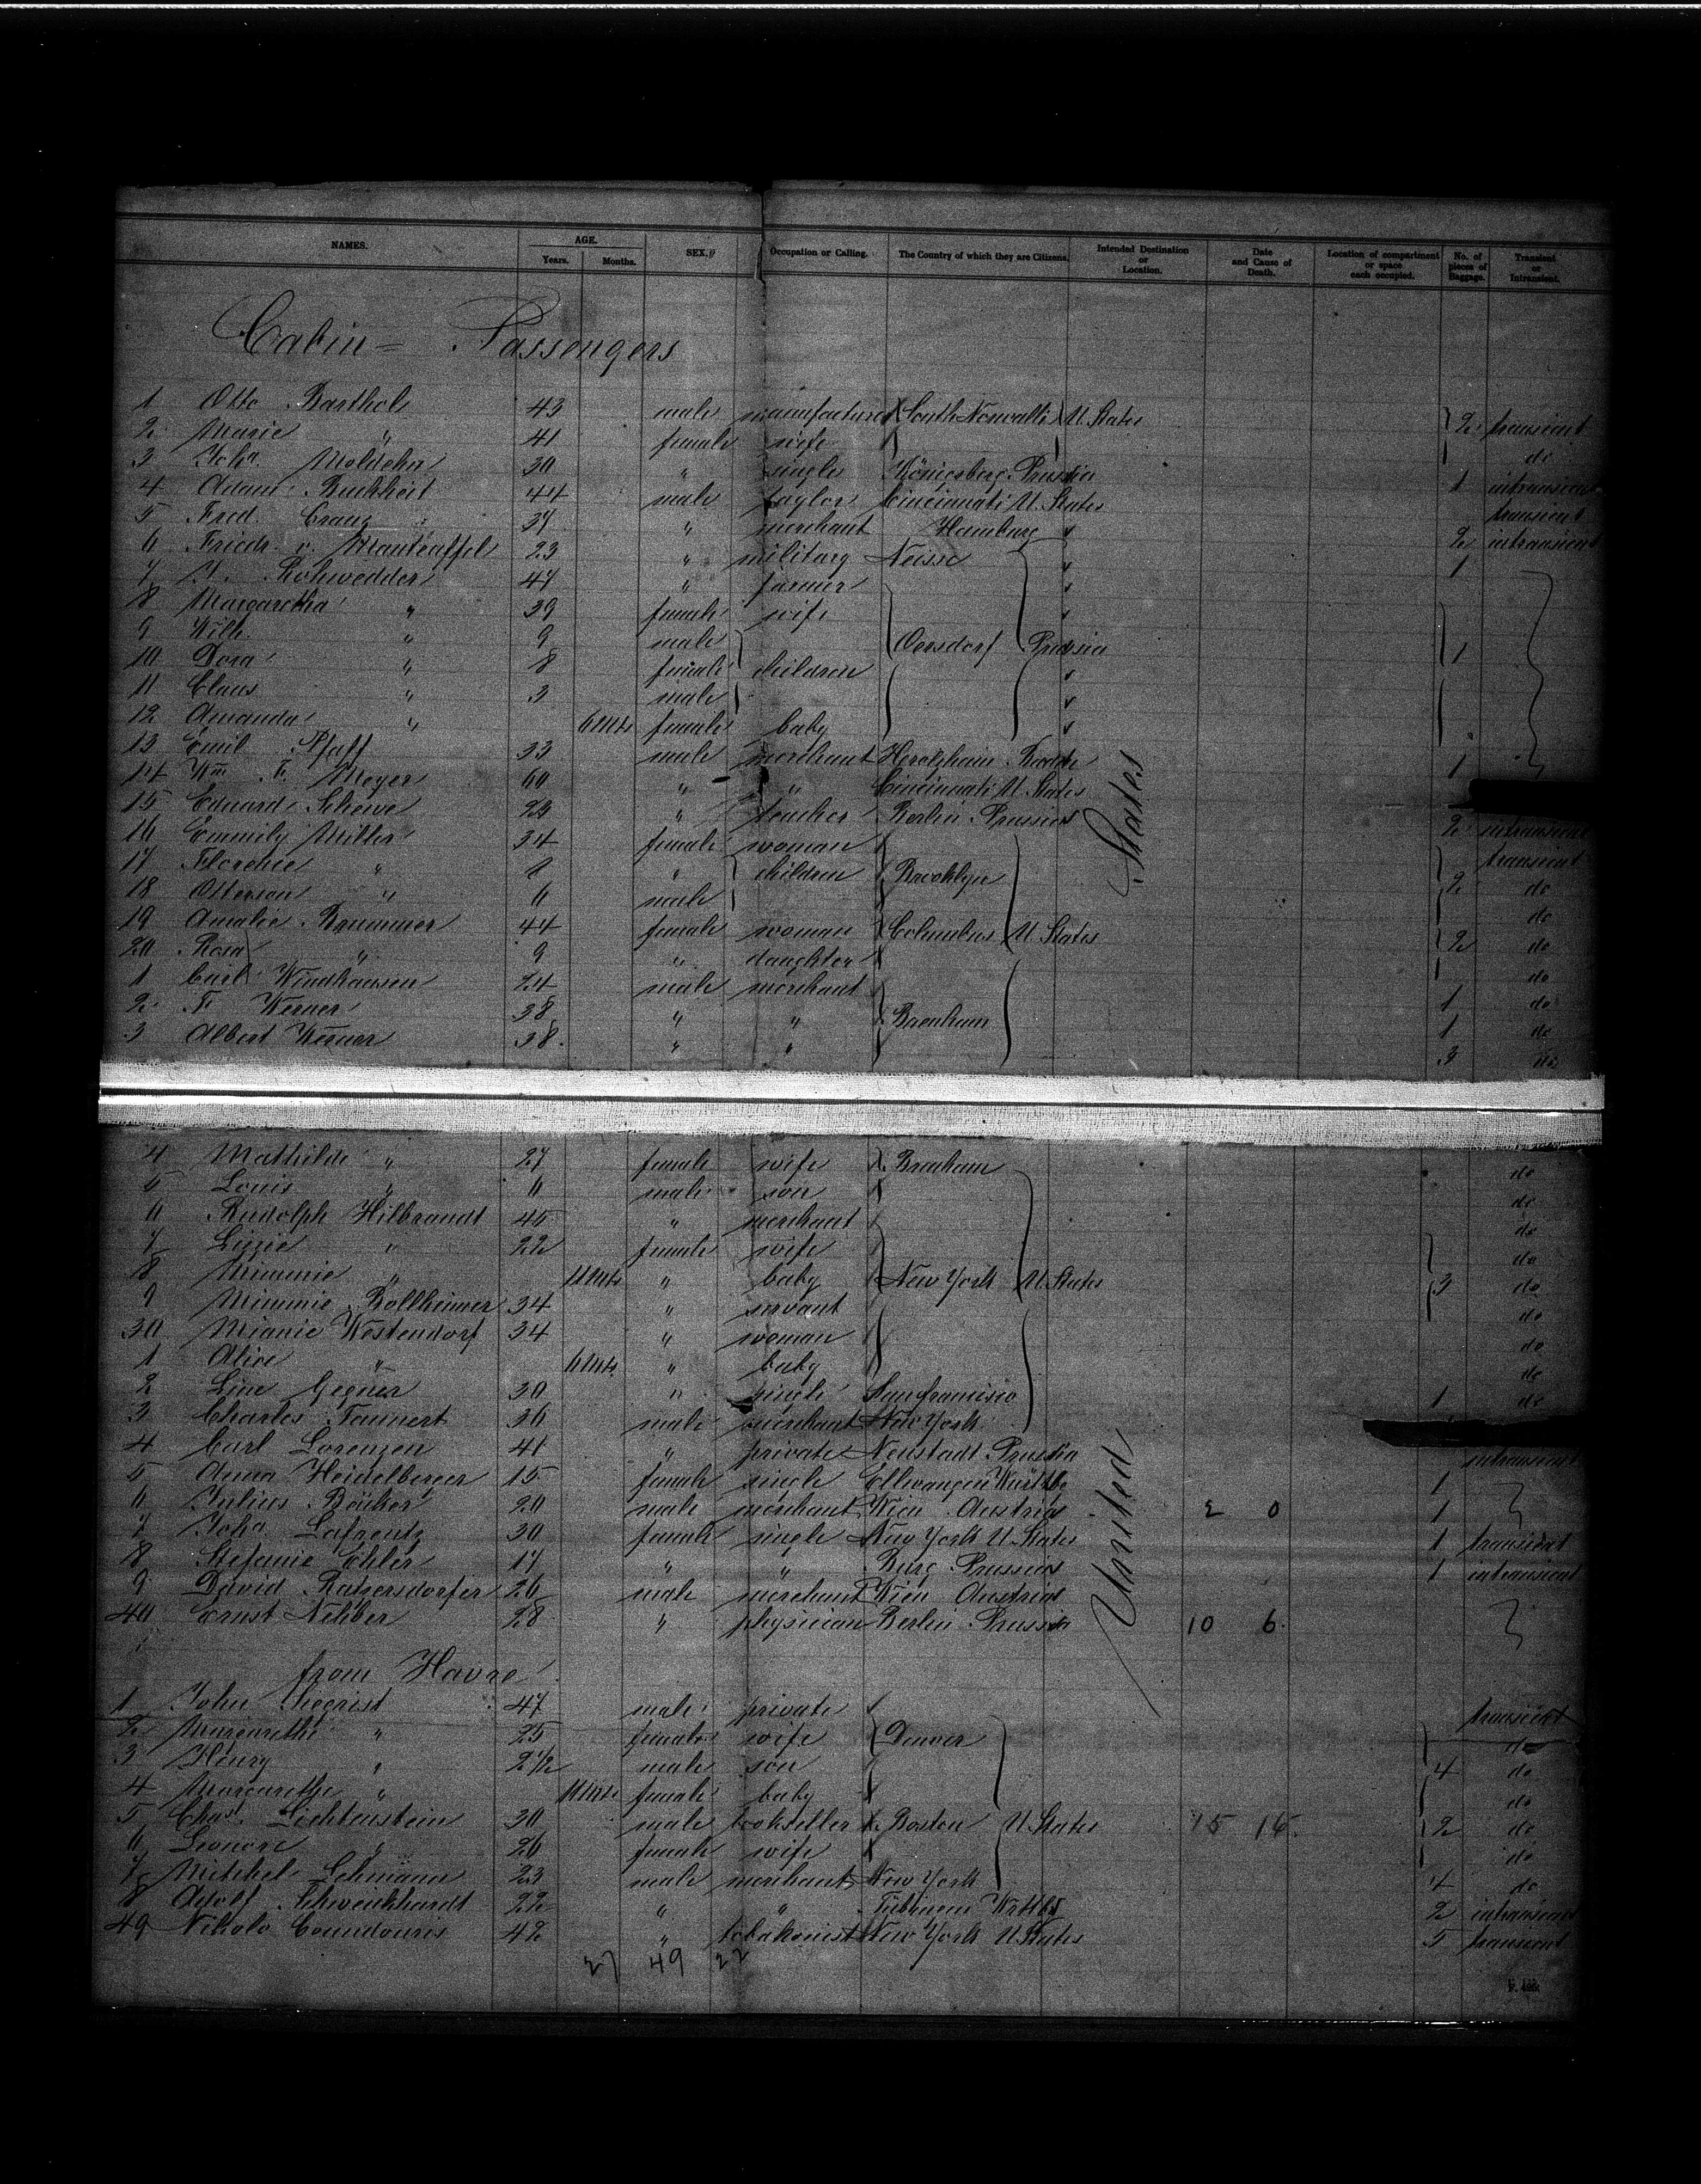 NAMES. AGE. Years. Months. SEX. Occupation or Calling. The Country of which they are Citizens. Intended Destination or Location. Date and Cause of Death. Location of compartment or space each occupied. No. of pieces of Baggage. Transient or Intransient.
Cabin = Passengers
1 Otto Barthols 43 male manufacturer South Norwalk U. States 2 transient
2 Marie " 41 female wife do
3 Joha 30 " single Königsberg Prussia 1 intransient
4 Adam Buchheit 44 male taylor Cincinnati U. States transient
5 Fred. Cranz 37 " merchant Hamburg 2 intransient
6 Friedr. v. Manteuffel 23 " military Neisse 1
7 J. Rohwedder 47 " farmer
8 Margaretha " 39 female wife
9 Wilh. " 9 male Oersdorf Prussia 1
10 Dora " 8 female children
11 Claus " 3 male
12 Amanda " 6 Mts female baby
13 Emil Pfaff 33 male merchant 1
14 Wm. F. Meyer 60 " " Cincinnati U. States
15 Eduard 23 " teacher Berlin Prussia 2 intransient
16 Emmily Miller 34 female woman transient
17 Florence " 8 " children Brooklyn 2 do
18 Otterson " 6 male do
19 Amalie Brummer 44 female woman Columbus U. States 2 do
20 Rosa " 9 " daughter do
1 Carl Windhausen 24 male merchant 1 do
2 F. Werner 38 " " Brenham 1 do
3 Albert Werner 38 " " 3 do
4 Mathilde " 27 female wife Brenham do
5 Louis " 6 male son do
6 Rudolph Hilbrandt 45 " merchant do
7 Lizzie " 22 female wife do
8 Mimmie " 11 Mts " baby New York U. States 3 do
9 Mimmie Bollheimer 34 " servant do
30 Minnie Westendorf 34 " woman do
1 Alice " 6 Mts. " baby do
2 Line Gegner 30 " single San francisco 1 do
3 Charles Tannert 36 male merchant New York
4 Carl Lorenzen 41 " private Neustadt Prussia intransient
5 Anna Heidelberger 15 female single Ellwangen Württbg 1
6 Julius 20 male merchant Wien Austria 2 0 1
7 Joha. Lafrentz 30 female single New York U. States 1 transient
8 Stefanie Ehler 17 " " Burg Prussia 1 intransient
9 David Ratzersdorfer 26 male merchant Wien Austria
40 Ernst Nehber 28 " physician Berlin Prussia 10 6.
United States
from Havre
1 John Siegrist 47 male private transient
2 Margarethe " 25 female wife Denver do
3 Henry " 2 1/2 male son 4 do
4 Margarethe " 11 Mts female baby do
5 Chas. Lichtenstein 30 male bookseller Boston U. States 15 16. 2 do
6 Leonore " 26 female wife do
7 Mitchel Lehmann 23 male merchant New York 4 do
8 Adolf Schweickhardt 22 " " Tübingen Wrttbg 2 intransient
49 Nikolo Coundouris 42 " tobakonist New York U. States 5 transient
27 49 22